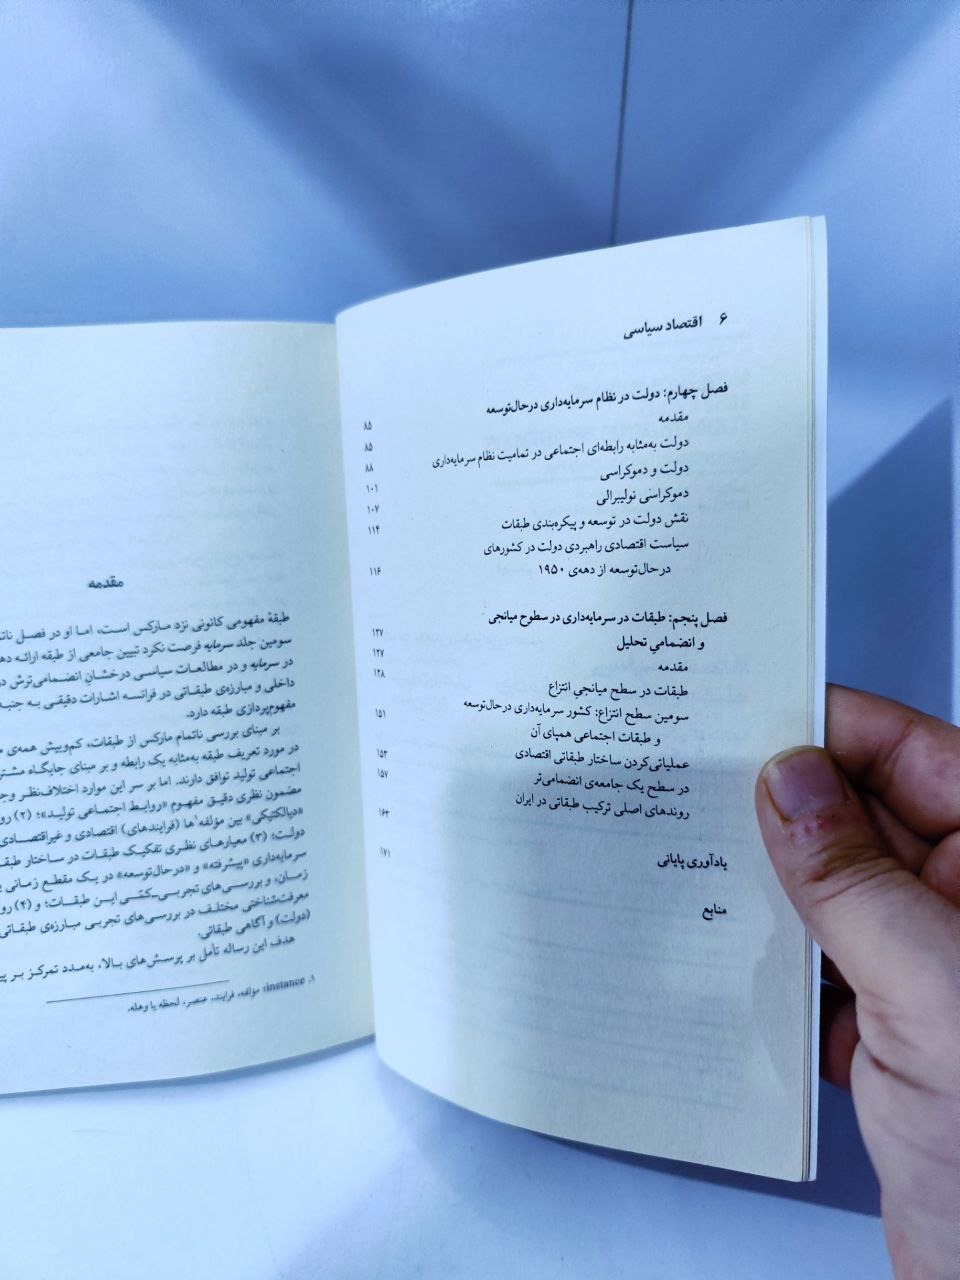 ۶ اقتصاد سیاسی
فصل چهارم: دولت در نظام سرمایه‌داری درحال‌توسعه
مقدمه ۸۵
دولت به‌مثابه رابطه‌ای اجتماعی در تمامیت نظام سرمایه‌داری ۸۵
دولت و دموکراسی ۸۸
دموکراسی نولیبرالی ۱۰۱
نقش دولت در توسعه و پیکره‌بندی طبقات ۱۰۷
سیاست اقتصادی راهبردی دولت در کشورهای ۱۱۴
درحال‌توسعه از دهه‌ی ۱۹۵۰ ۱۱۶
فصل پنجم: طبقات در سرمایه‌داری در سطوح میانجی
و انضمامیِ تحلیل ۱۲۷
مقدمه ۱۲۷
طبقات در سطح میانجیِ انتزاع ۱۲۸
سومین سطح انتزاع: کشور سرمایه‌داری درحال‌توسعه
و طبقات اجتماعی همپای آن ۱۵۱
عملیاتی‌کردن ساختار طبقاتی اقتصادی ۱۵۳
در سطح یک جامعه‌ی انضمامی‌تر ۱۵۷
روندهای اصلی ترکیب طبقاتی در ایران ۱۶۳
یادآوری پایانی ۱۷۱
منابع
مقدمه
طبقهٔ مفهومی کانونی نزد مارکس است، اما او در فصل
سومین جلد سرمایه فرصت نکرد تبیین جامعی از طبقه ارائه
در سرمایه و در مطالعات سیاسی درخشان انضمامی‌ترش
داخلی و مبارزه‌ی طبقاتی در فرانسه اشارات دقیقی به
مفهوم‌پردازی طبقه دارد.
بر مبنای بررسی ناتمام مارکس از طبقات، کم‌وبیش همه‌ی
در مورد تعریف طبقه به‌مثابه یک رابطه و بر مبنای جایگاه
اجتماعی تولید توافق دارند. اما بر سر این موارد اختلاف‌نظر
مضمون نظری دقیق مفهوم «روابط اجتماعی تولید»؛ (۲)
«دیالکتیکی» بین مؤلفه¹ها (فرایندهای) اقتصادی و
دولت؛ (۳) معیارهای نظری تفکیک طبقات در ساختار
سرمایه‌داری «پیشرفته» و «درحال‌توسعه» در یک مقطع زمانی
زمان، و بررسی‌های تجربی‌ـ‌کمّی این طبقات؛ و (۴)
معرفت‌شناختی مختلف در بررسی‌های تجربی مبارزه‌ی طبقاتی
(دولت) و آگاهی طبقاتی.
هدف این رساله تأمل بر پرسش‌های بالا، به‌مدد تمرکز بر
۱. instance: مؤلفه، فرایند، عنصر، لحظه یا وهله.